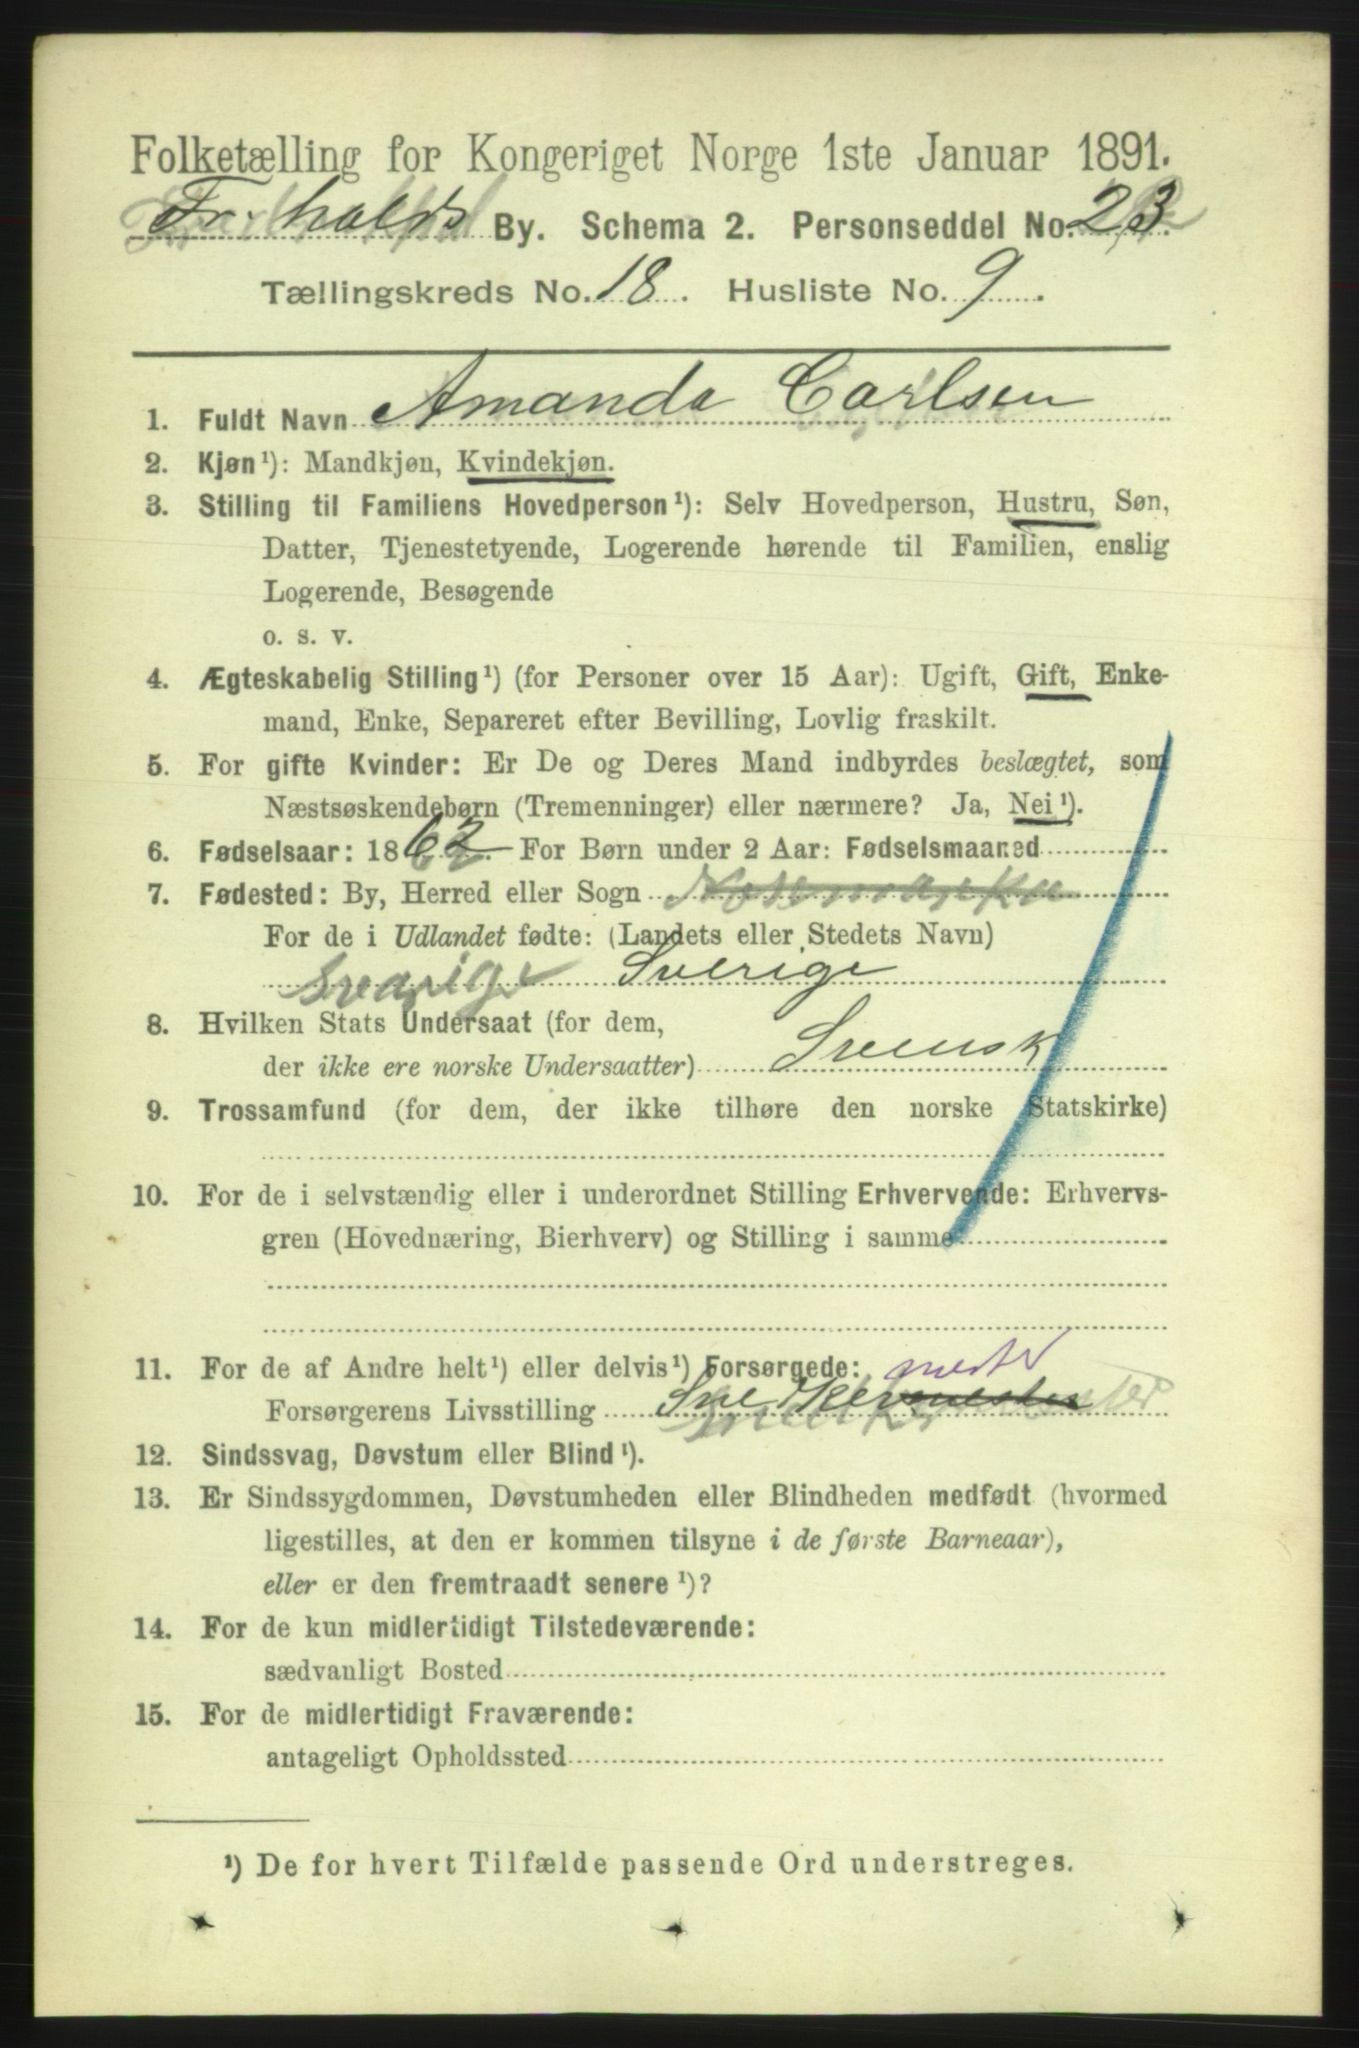 Folketælling for Kongeriget Norge 1ste Januar 1891.
Fr.halds By. Schema 2. Personseddel No. 23.
Tællingskreds No. 18. Husliste No. 9.
1. Fuldt Navn Amanda Carlsen
2. Kjøn¹): Mandkjøn, Kvindekjøn.
3. Stilling til Familiens Hovedperson¹): Selv Hovedperson, Hustru, Søn,
Datter, Tjenestetyende, Logerende hørende til Familien, enslig
Logerende, Besøgende
o. s. v.
4. Ægteskabelig Stilling¹) (for Personer over 15 Aar): Ugift, Gift, Enke-
mand, Enke, Separeret efter Bevilling, Lovlig fraskilt.
5. For gifte Kvinder: Er De og Deres Mand indbyrdes beslægtet, som
Næstsøskendebørn (Tremenninger) eller nærmere? Ja, Nei¹).
6. Fødselsaar: 1862. For Børn under 2 Aar: Fødselsmaaned
7. Fødested: By, Herred eller Sogn
For de i Udlandet fødte: (Landets eller Stedets Navn)
Sverige Sverige
8. Hvilken Stats Undersaat (for dem,
der ikke ere norske Undersaatter) Svensk
9. Trossamfund (for dem, der ikke tilhøre den norske Statskirke)
10. For de i selvstændig eller i underordnet Stilling Erhvervende: Erhvervs-
gren (Hovednæring, Bierhverv) og Stilling i samme
11. For de af Andre helt¹) eller delvis¹) Forsørgede: mester
Forsørgerens Livsstilling Snekkermester
12. Sindssvag, Døvstum eller Blind¹).
13. Er Sindssygdommen, Døvstumheden eller Blindheden medfødt (hvormed
ligestilles, at den er kommen tilsyne i de første Barneaar),
eller er den fremtraadt senere¹)?
14. For de kun midlertidigt Tilstedeværende:
sædvanligt Bosted
15. For de midlertidigt Fraværende:
antageligt Opholdssted
¹) De for hvert Tilfælde passende Ord understreges.